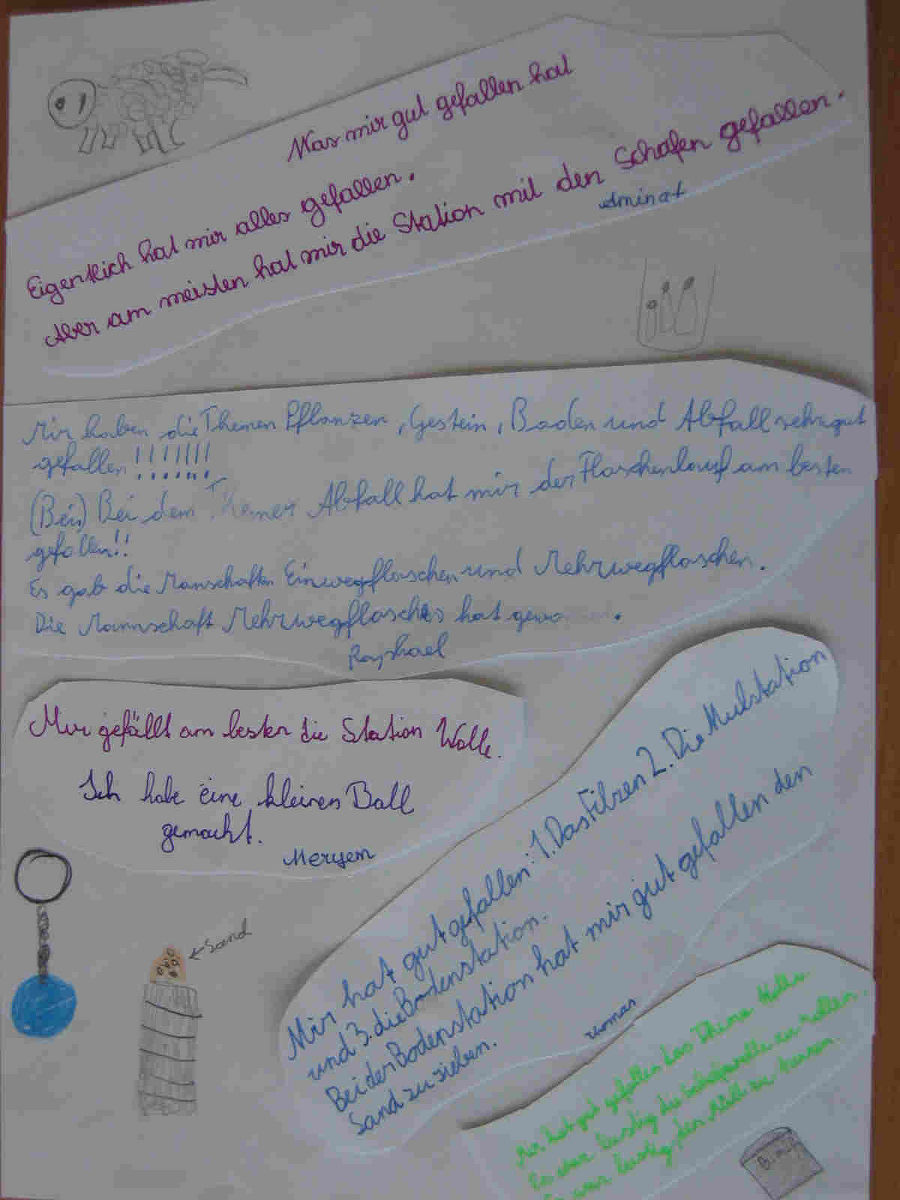 Was mir gut gefallen hat
Eigentlich hat mir alles gefallen.
Aber am meisten hat mir die Station mit den Schafen gefallen.
Aminat
Mir haben die Themen Pflanzen, Gestein, Boden und Abfall sehr gut
gefallen!!!!!!!
(Bei) Bei dem Abfall hat mir der Flaschenlauf am besten
gefallen!!
Es gab die Manschaften Einwegflaschen und Mehrwegflaschen.
Die Mannschaft Mehrwegflaschen hat gewo
Raphael
Mir gefällt am besten die Station Wolle.
Ich habe eine kleinen Ball
gemacht.
Meryem
Sand
Mir hat gut gefallen: 1. Das Filzen 2. Die Mulstation
und 3. die Bodenstation.
Bei der Bodenstation hat mir gut gefallen den
Sand zu sieben.
Mir hat gut gefallen das Thema
Es war lustig die zu
Es war lustig den Müll zu